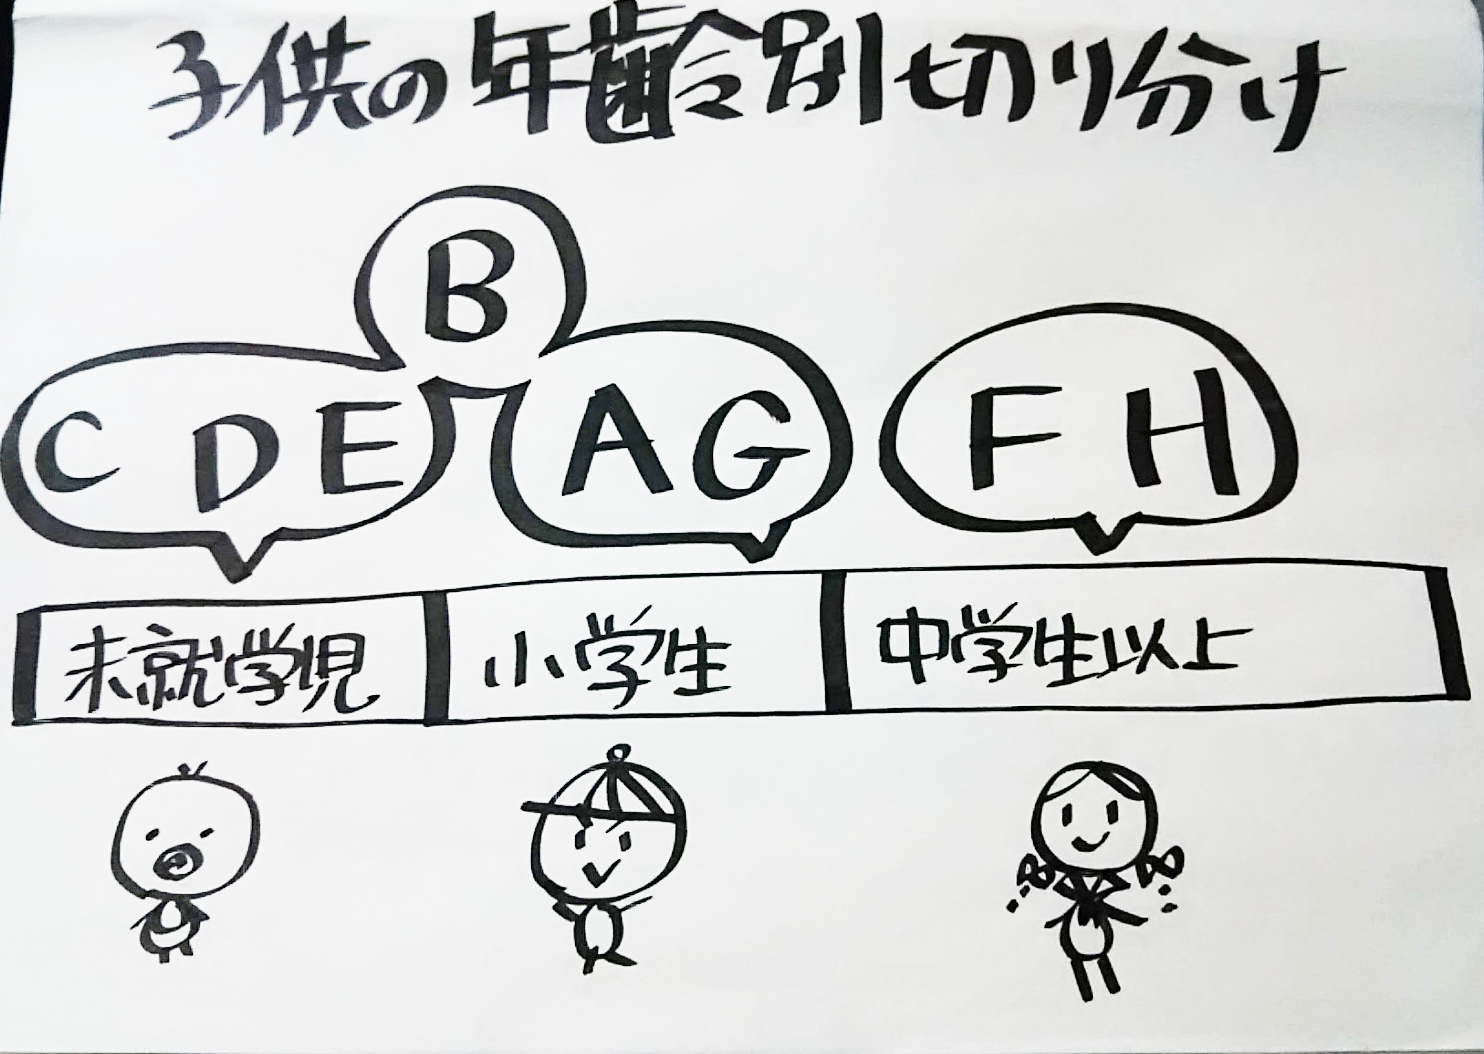 子供の年齢別切り分け
B
C D E
A G
F H
未就学児
小学生
中学生以上